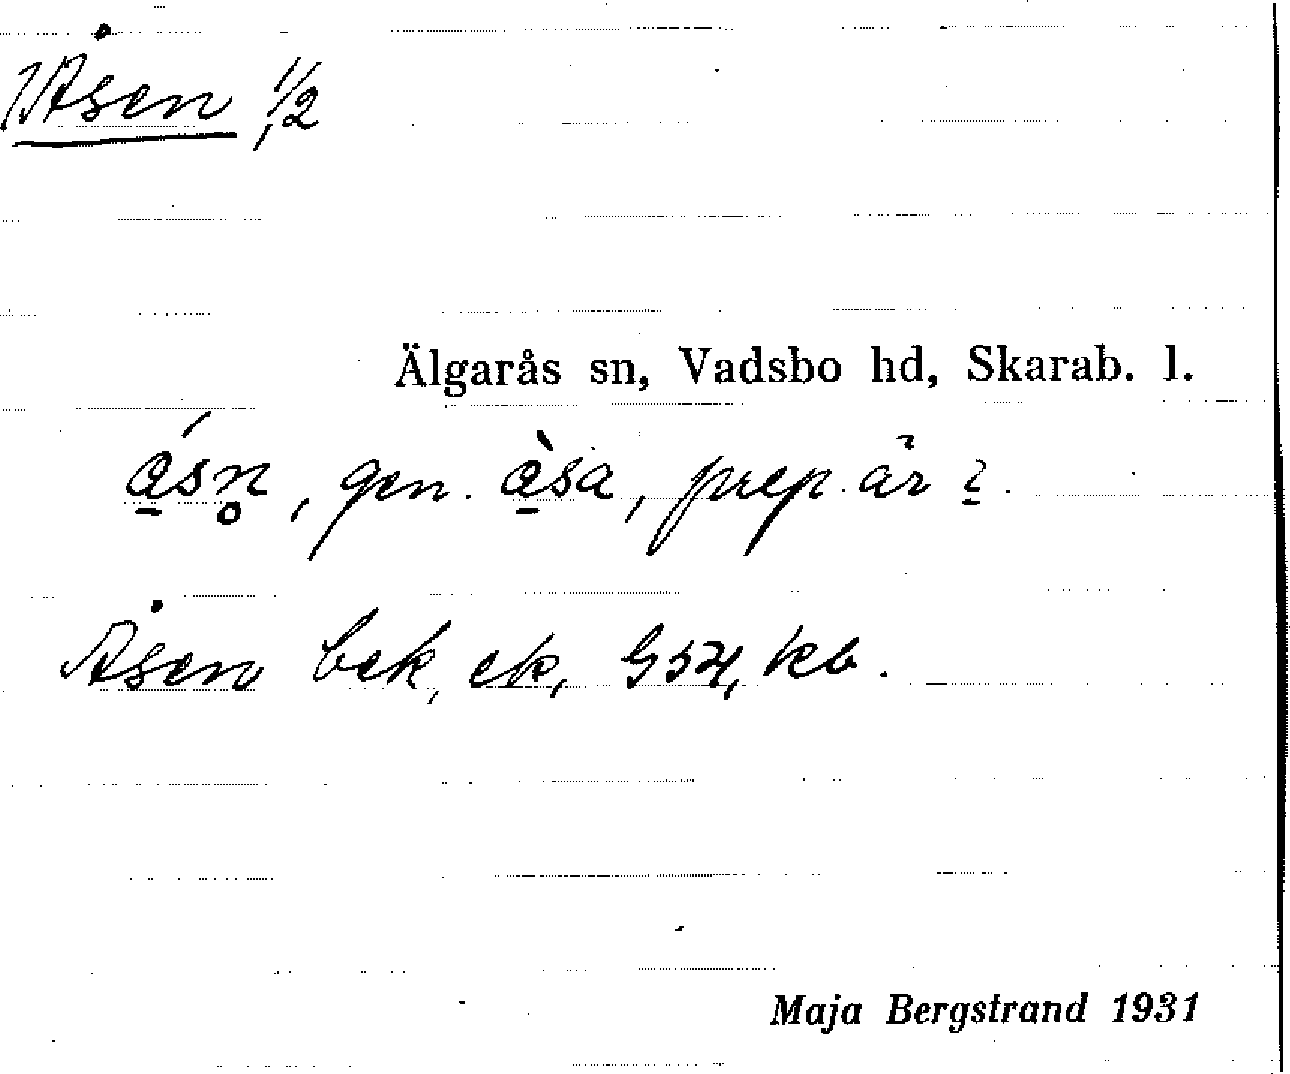 1/Åsen 1/2
Älgarås sn, Vadsbo hd, Skarab. l.
ås̥n, gen. åsa, prep. är i.
Åsen bek, ek, G5X, kb.
Maja Bergstrand 1931